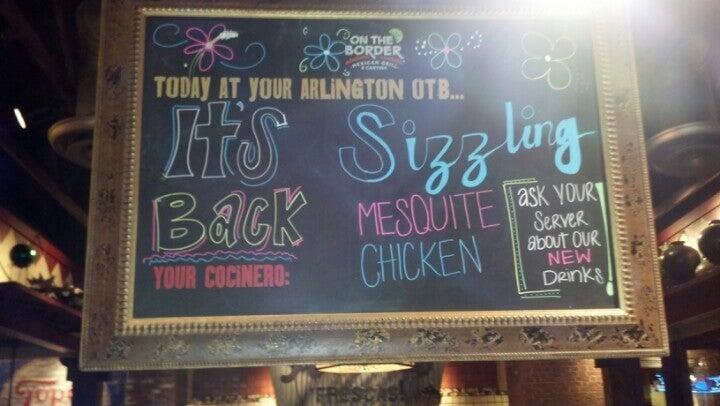 ON THE
BORDER
MEXICAN GRILL
& CANTINA
TODAY AT YOUR ARLINGTON OTB...
IT'S
BACK
YOUR COCINERO:
Sizzling
MESQUITE
CHICKEN
ASK YOUR
Server
about our
NEW
Drinks!